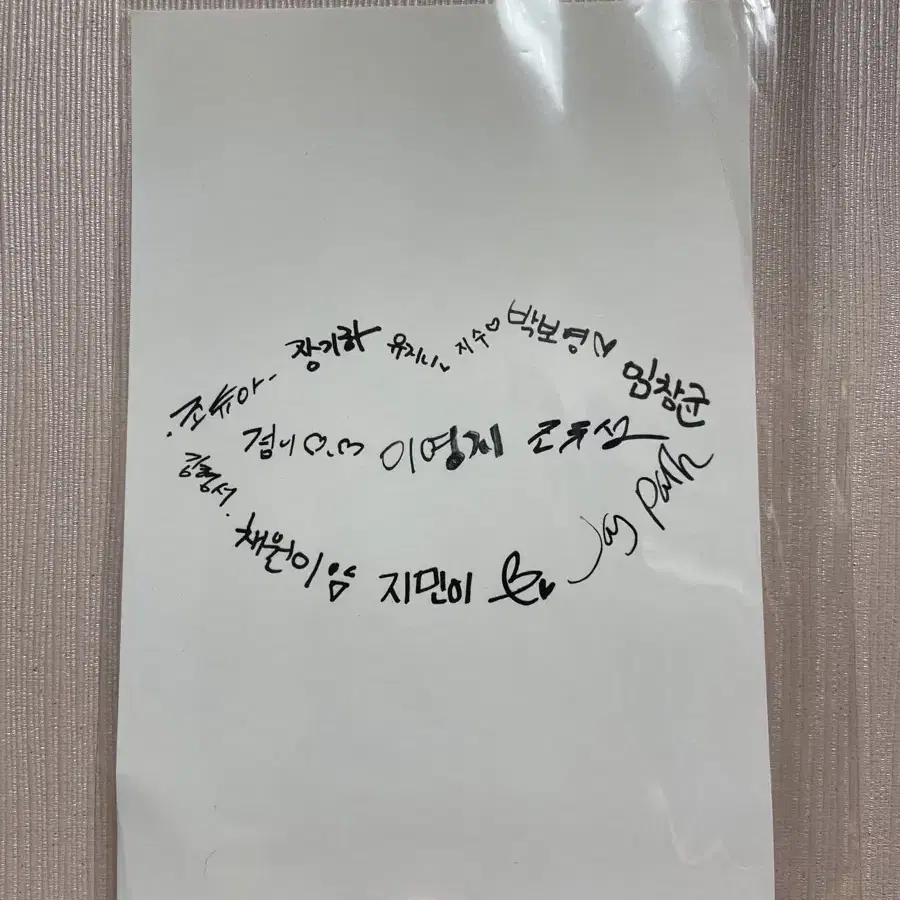 조슈아
장기하
유지니
지수♡
박보영♡
임창균
겸이♡.♡
이영지
Jay Park
채원이암
지민이